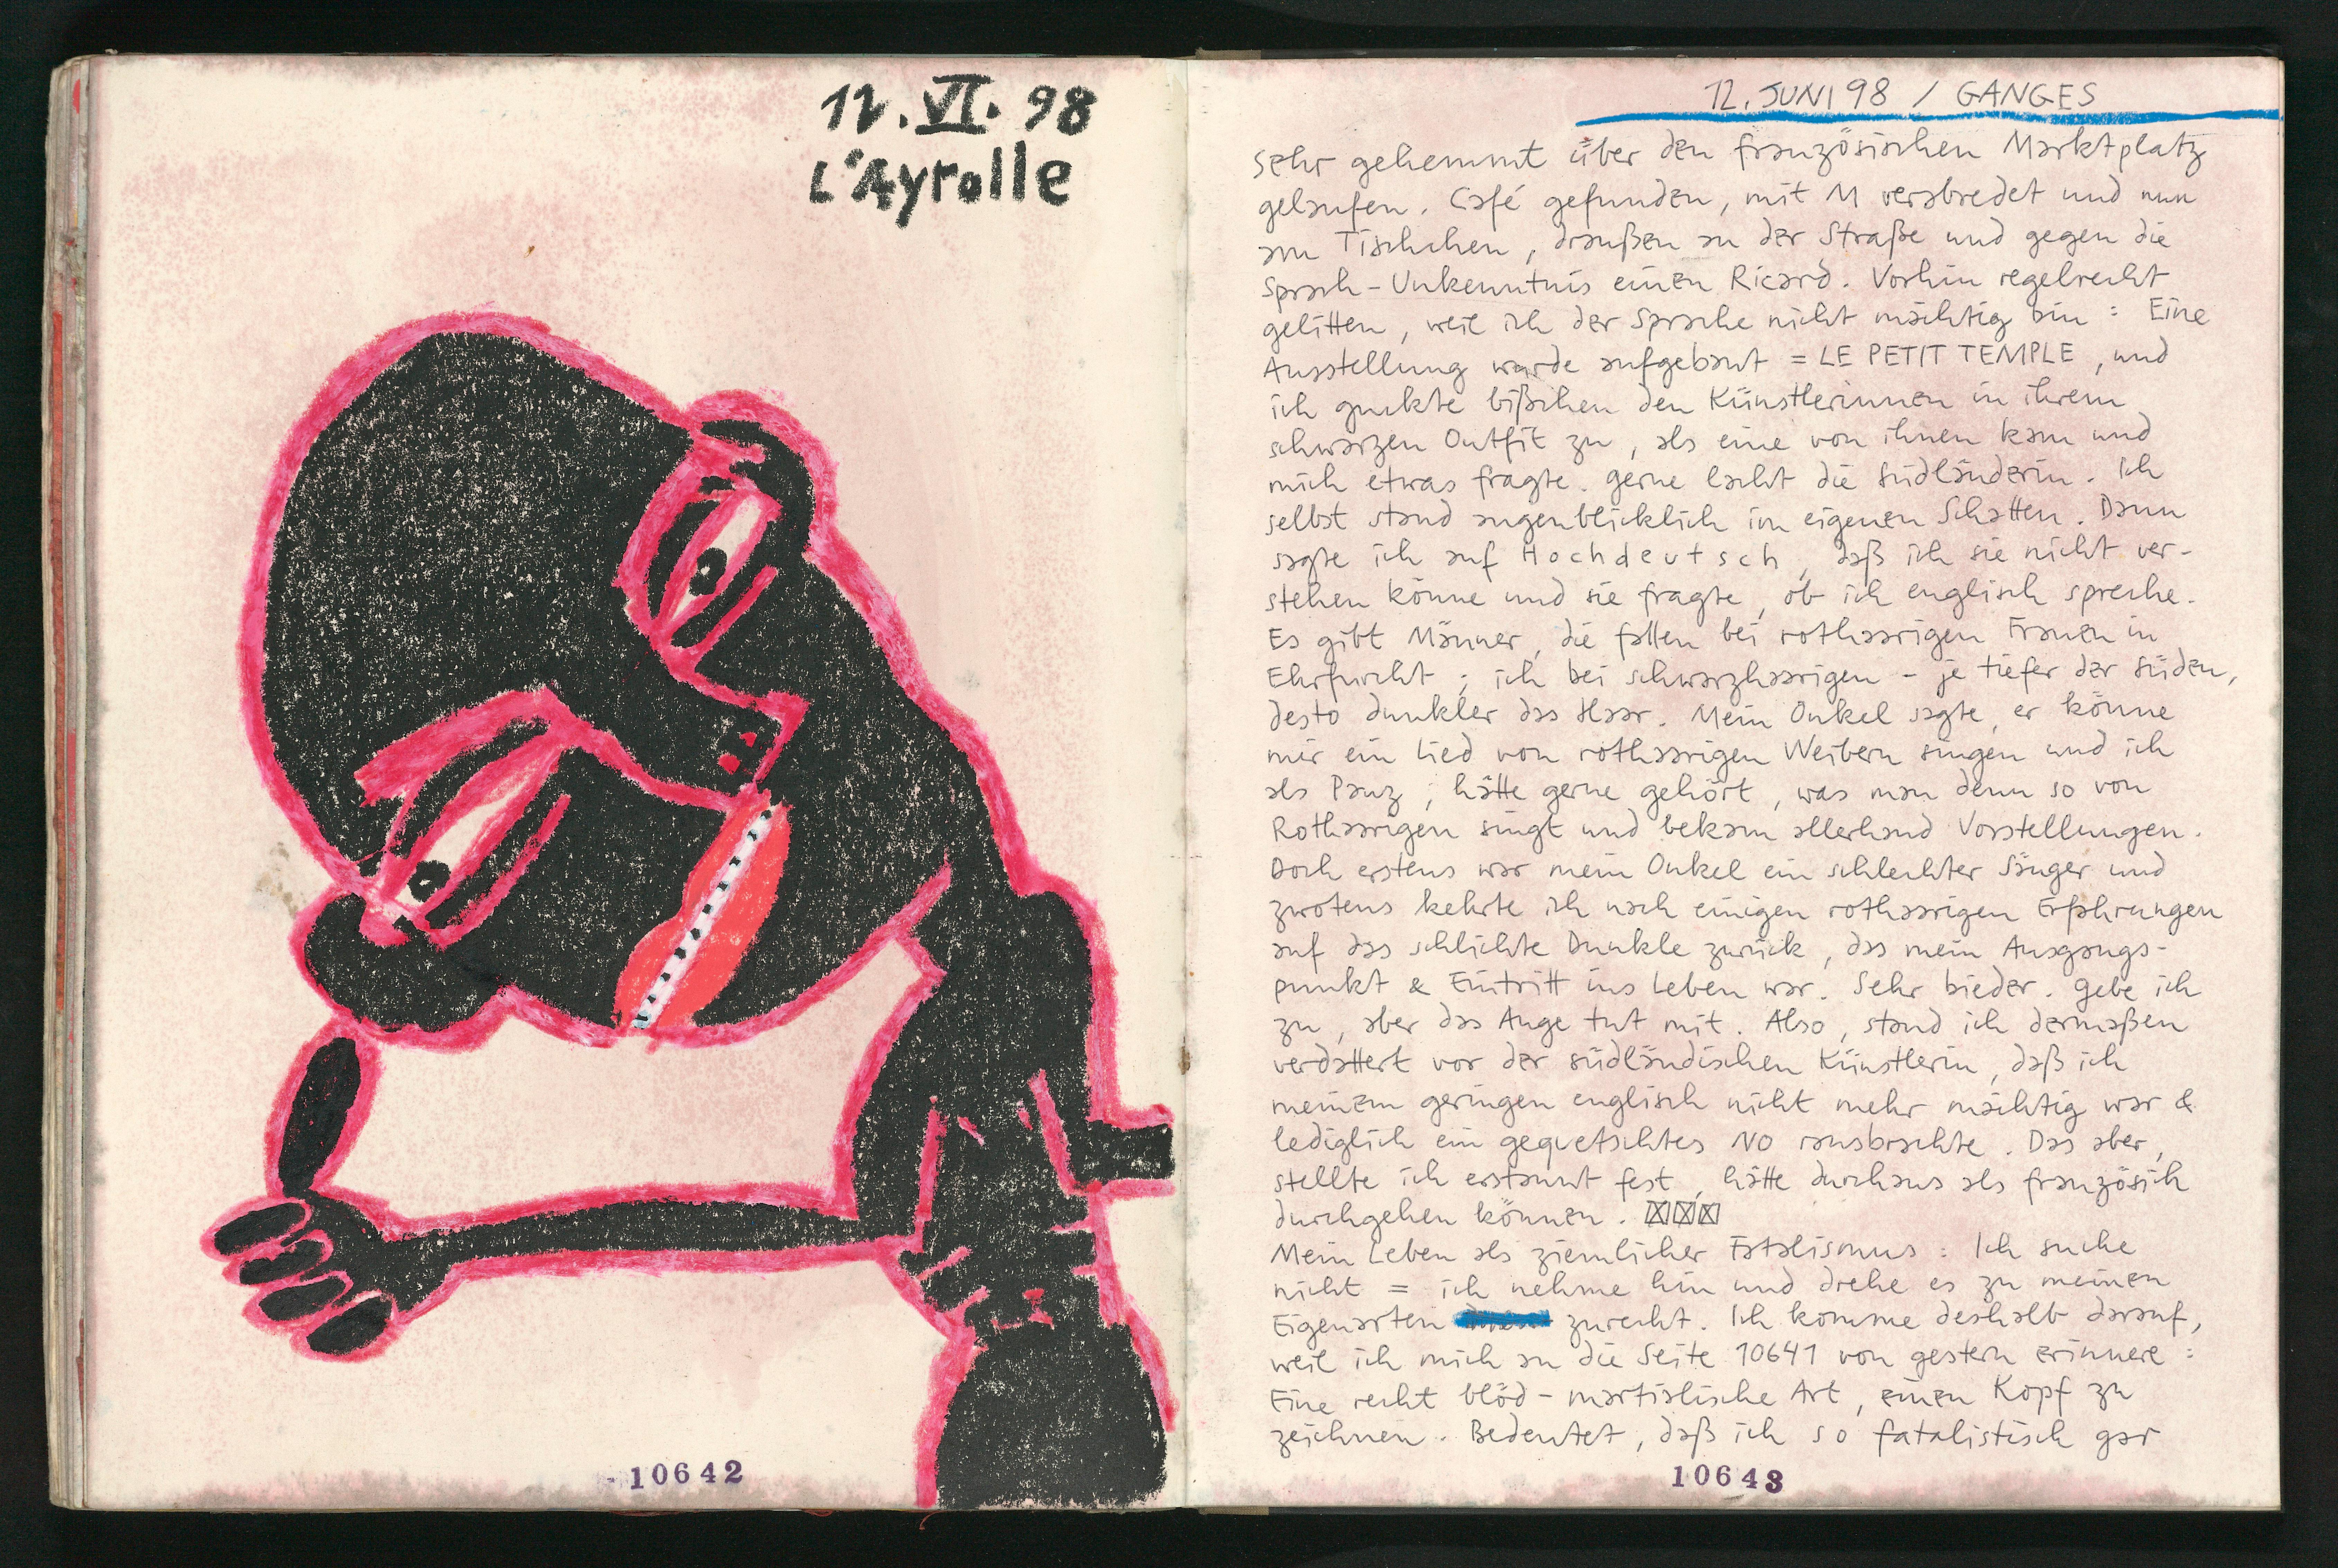 12. VI. 98
L'Ayrolle
10642
12. JUNI 98 / GANGES
Sehr gehemmt über den französischen Marktplatz
gelaufen. Café gefunden, mit M verabredet und nun
am Tischchen, draußen an der Straße und gegen die
Sprach-Unkenntnis einen Ricard. Vorhin regelrecht
gelitten, weil ich der Sprache nicht mächtig bin: Eine
Ausstellung wurde aufgebaut = LE PETIT TEMPLE, und
ich guckte bißchen den Künstlerinnen in ihrem
schwarzen Outfit zu, als eine von ihnen kam und
mich etwas fragte. Gerne lacht die Südländerin. Ich
selbst stand augenblicklich im eigenen Schatten. Dann
sagte ich auf Hochdeutsch, daß ich sie nicht ver-
stehen könne und sie fragte, ob ich englisch spreche.
Es gibt Männer, die fallen bei rothaarigen Frauen in
Ehrfurcht; ich bei schwarzhaarigen - je tiefer der Süden,
desto dunkler das Haar. Mein Onkel sagte, er könne
mir ein Lied von rothaarigen Weibern singen und ich
als Panz, hätte gerne gehört, was man denn so von
Rothaarigen singt und bekam allerhand Vorstellungen.
Doch erstens war mein Onkel ein schlechter Sänger und
zwotens kehrte ich nach einigen rothaarigen Erfahrungen
auf das schlichte Dunkle zurück, das mein Ausgangs-
punkt & Eintritt ins Leben war. Sehr bieder. Gebe ich
zu, aber das Auge tut mit. Also, stand ich dermaßen
verdattert vor der südländischen Künstlerin, daß ich
meinem geringen englisch nicht mehr mächtig war &
lediglich ein gequetschtes NO rausbrachte. Das aber,
stellte ich erstaunt fest, hätte durchaus als französich
durchgehen können. ☒☒☒
Mein Leben als ziemlicher Fatalismus: Ich suche
nicht = ich nehme hin und drehe es zu meinen
Eigenarten zurecht. Ich komme deshalb darauf,
weil ich mich an die Seite 10641 von gestern erinnere:
Eine recht blöd-martialische Art, einen Kopf zu
zeichnen. Bedeutet, daß ich so fatalistisch gar
10643